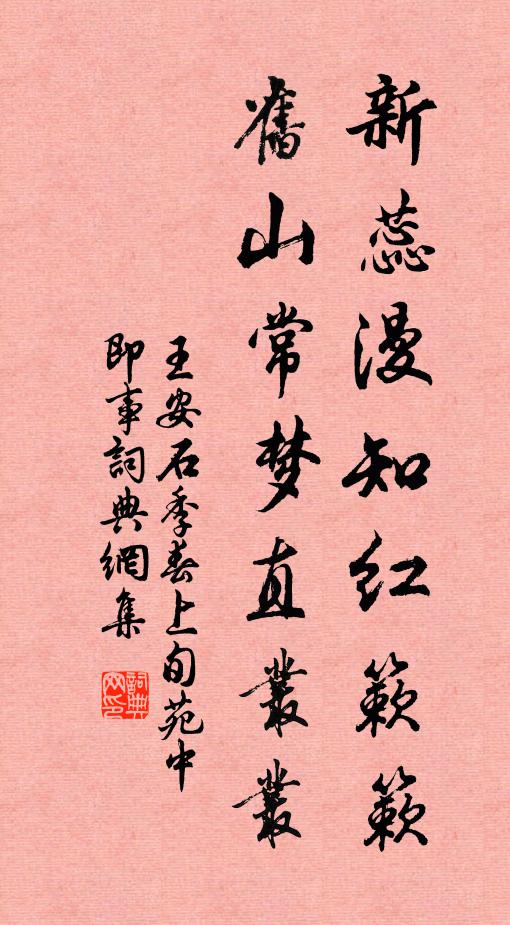 新蕊漫知红簌簌
舊山常梦直叢叢
王安石季春上旬苑中
即事詞典網集
詞典网印